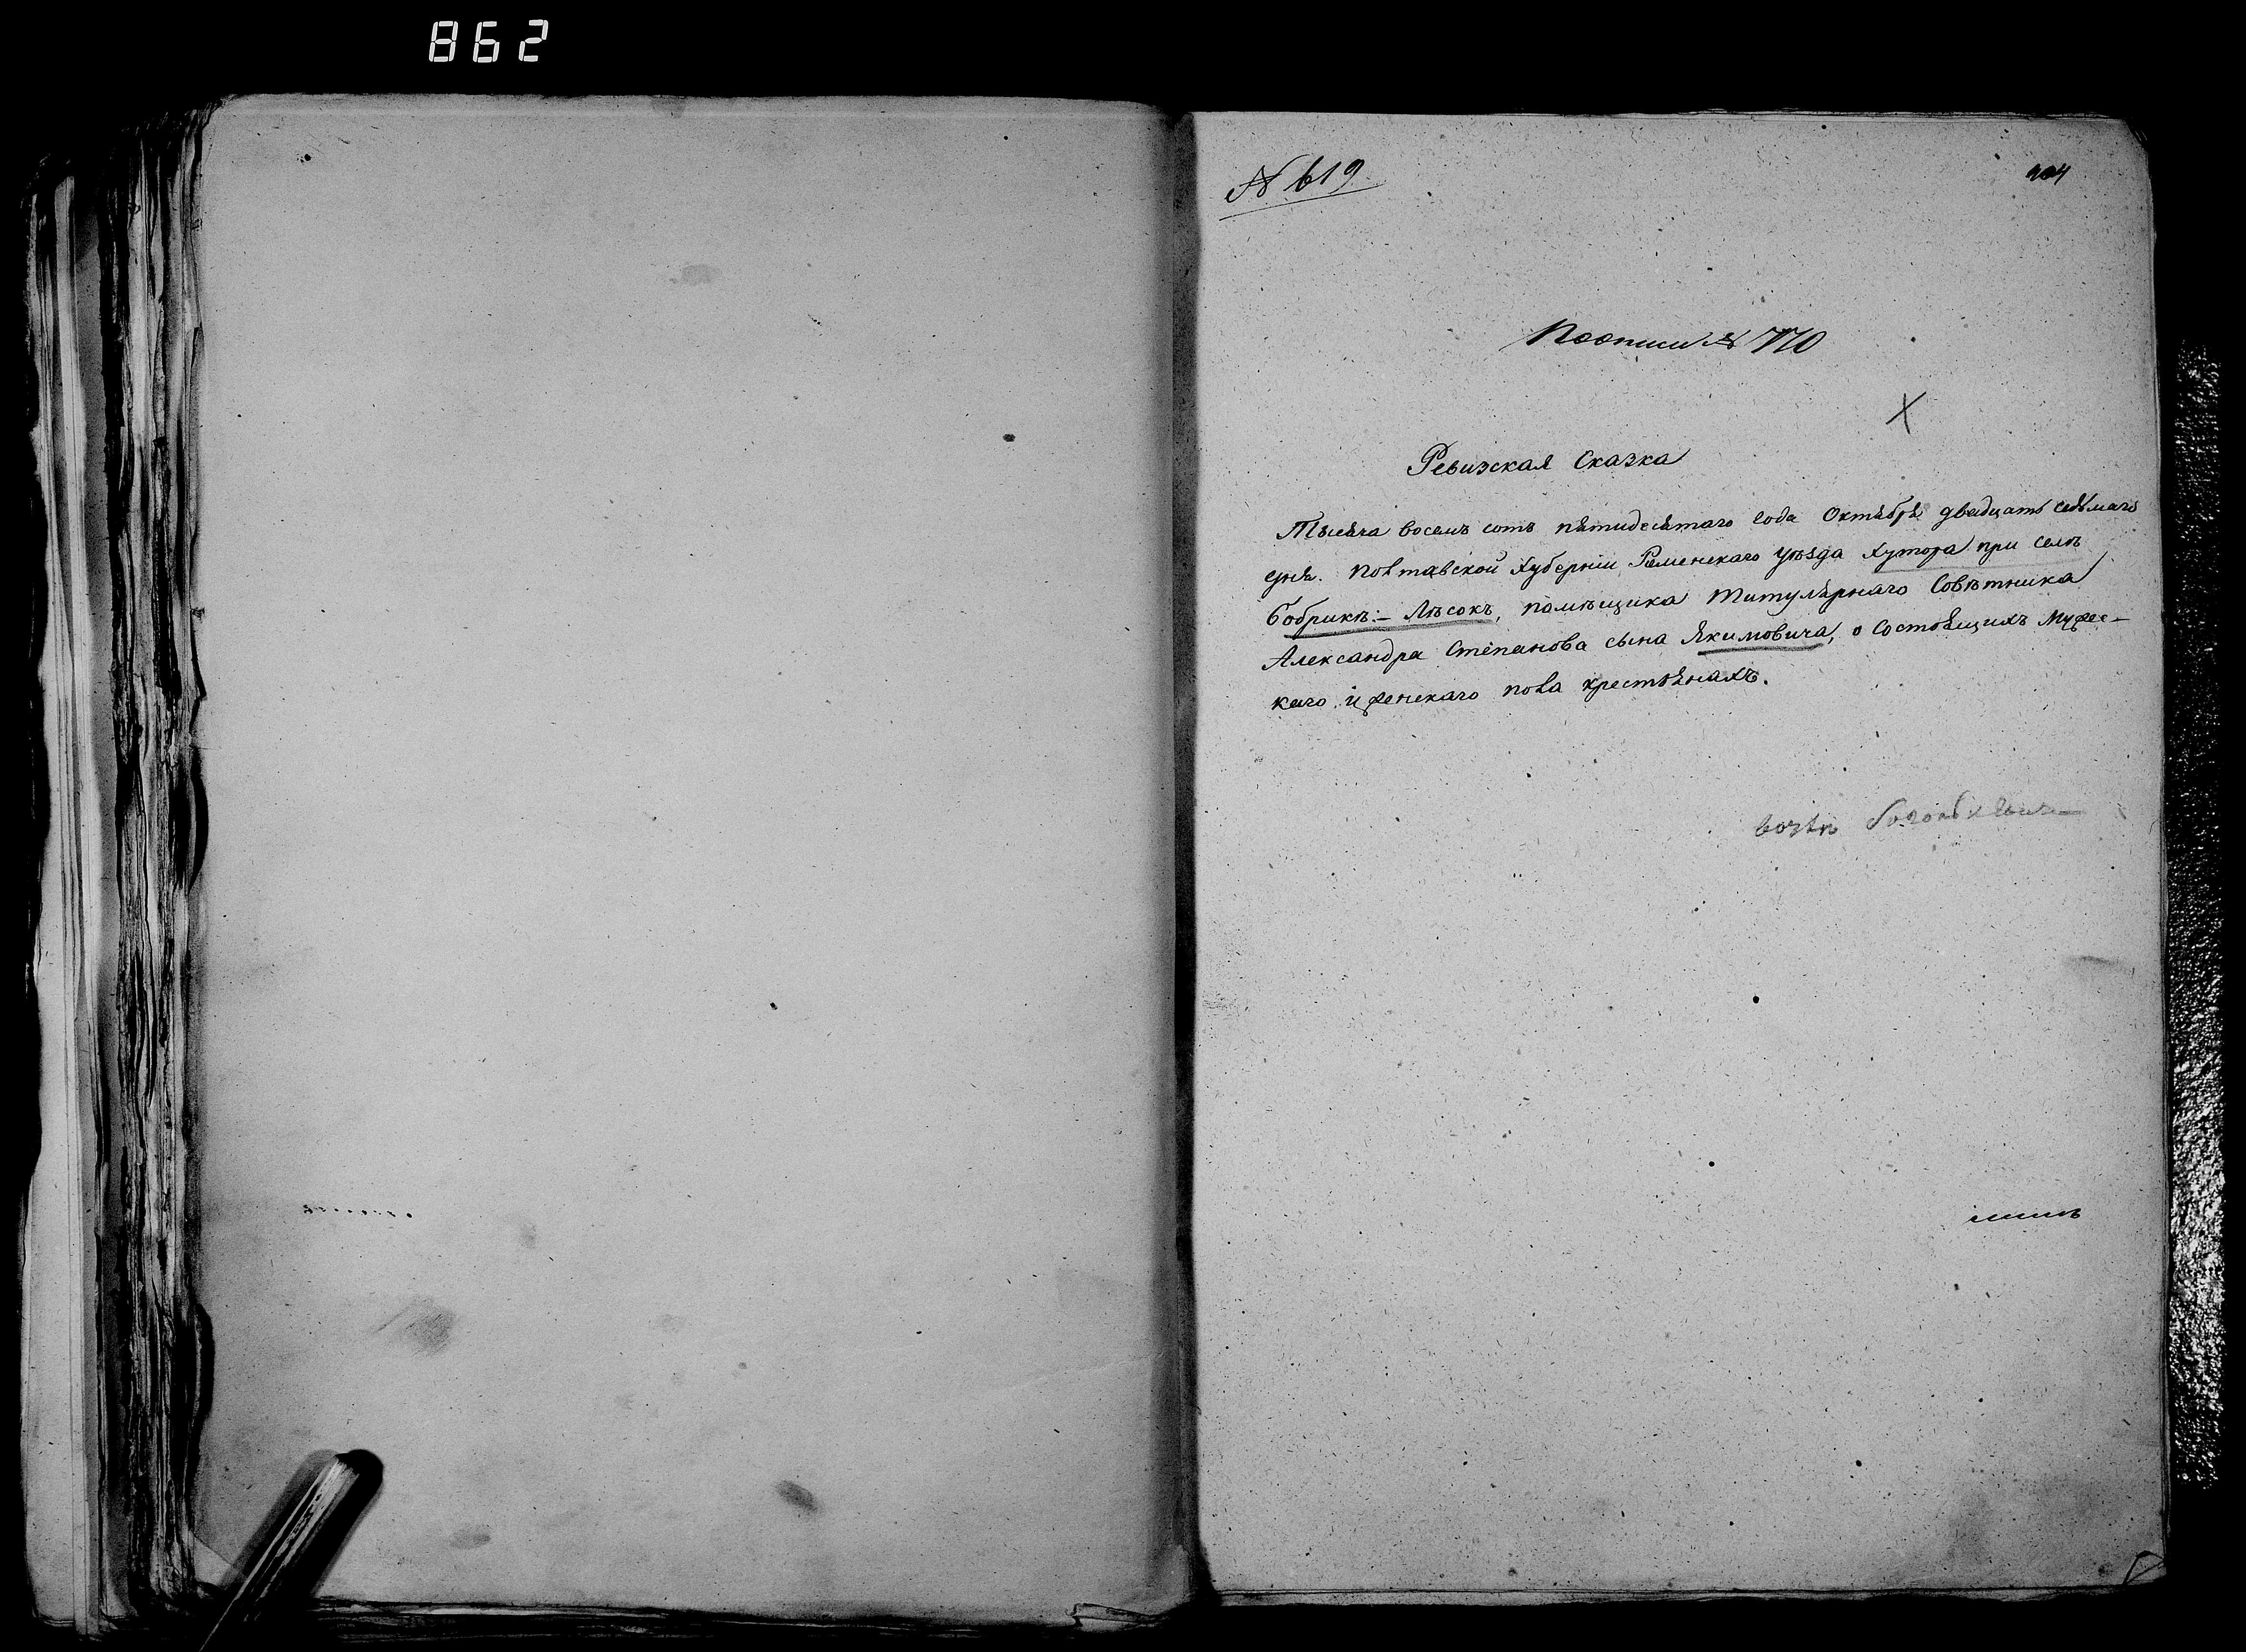 862
№ 619
904
По описи № 770
Ревизская Сказка
Тысяча восемь сотъ пятидесятаго года Октября двадцать седьмаго
дня. Полтавской Губернiи, Роменскаго уѣзда хутора при селѣ
Бобрикѣ:- Лѣсокъ, помѣщика Титулярнаго Совѣтника
Александра Степанова сына Якимовича, о состоящихъ мужес-
каго и женскаго пола крестьянахъ.